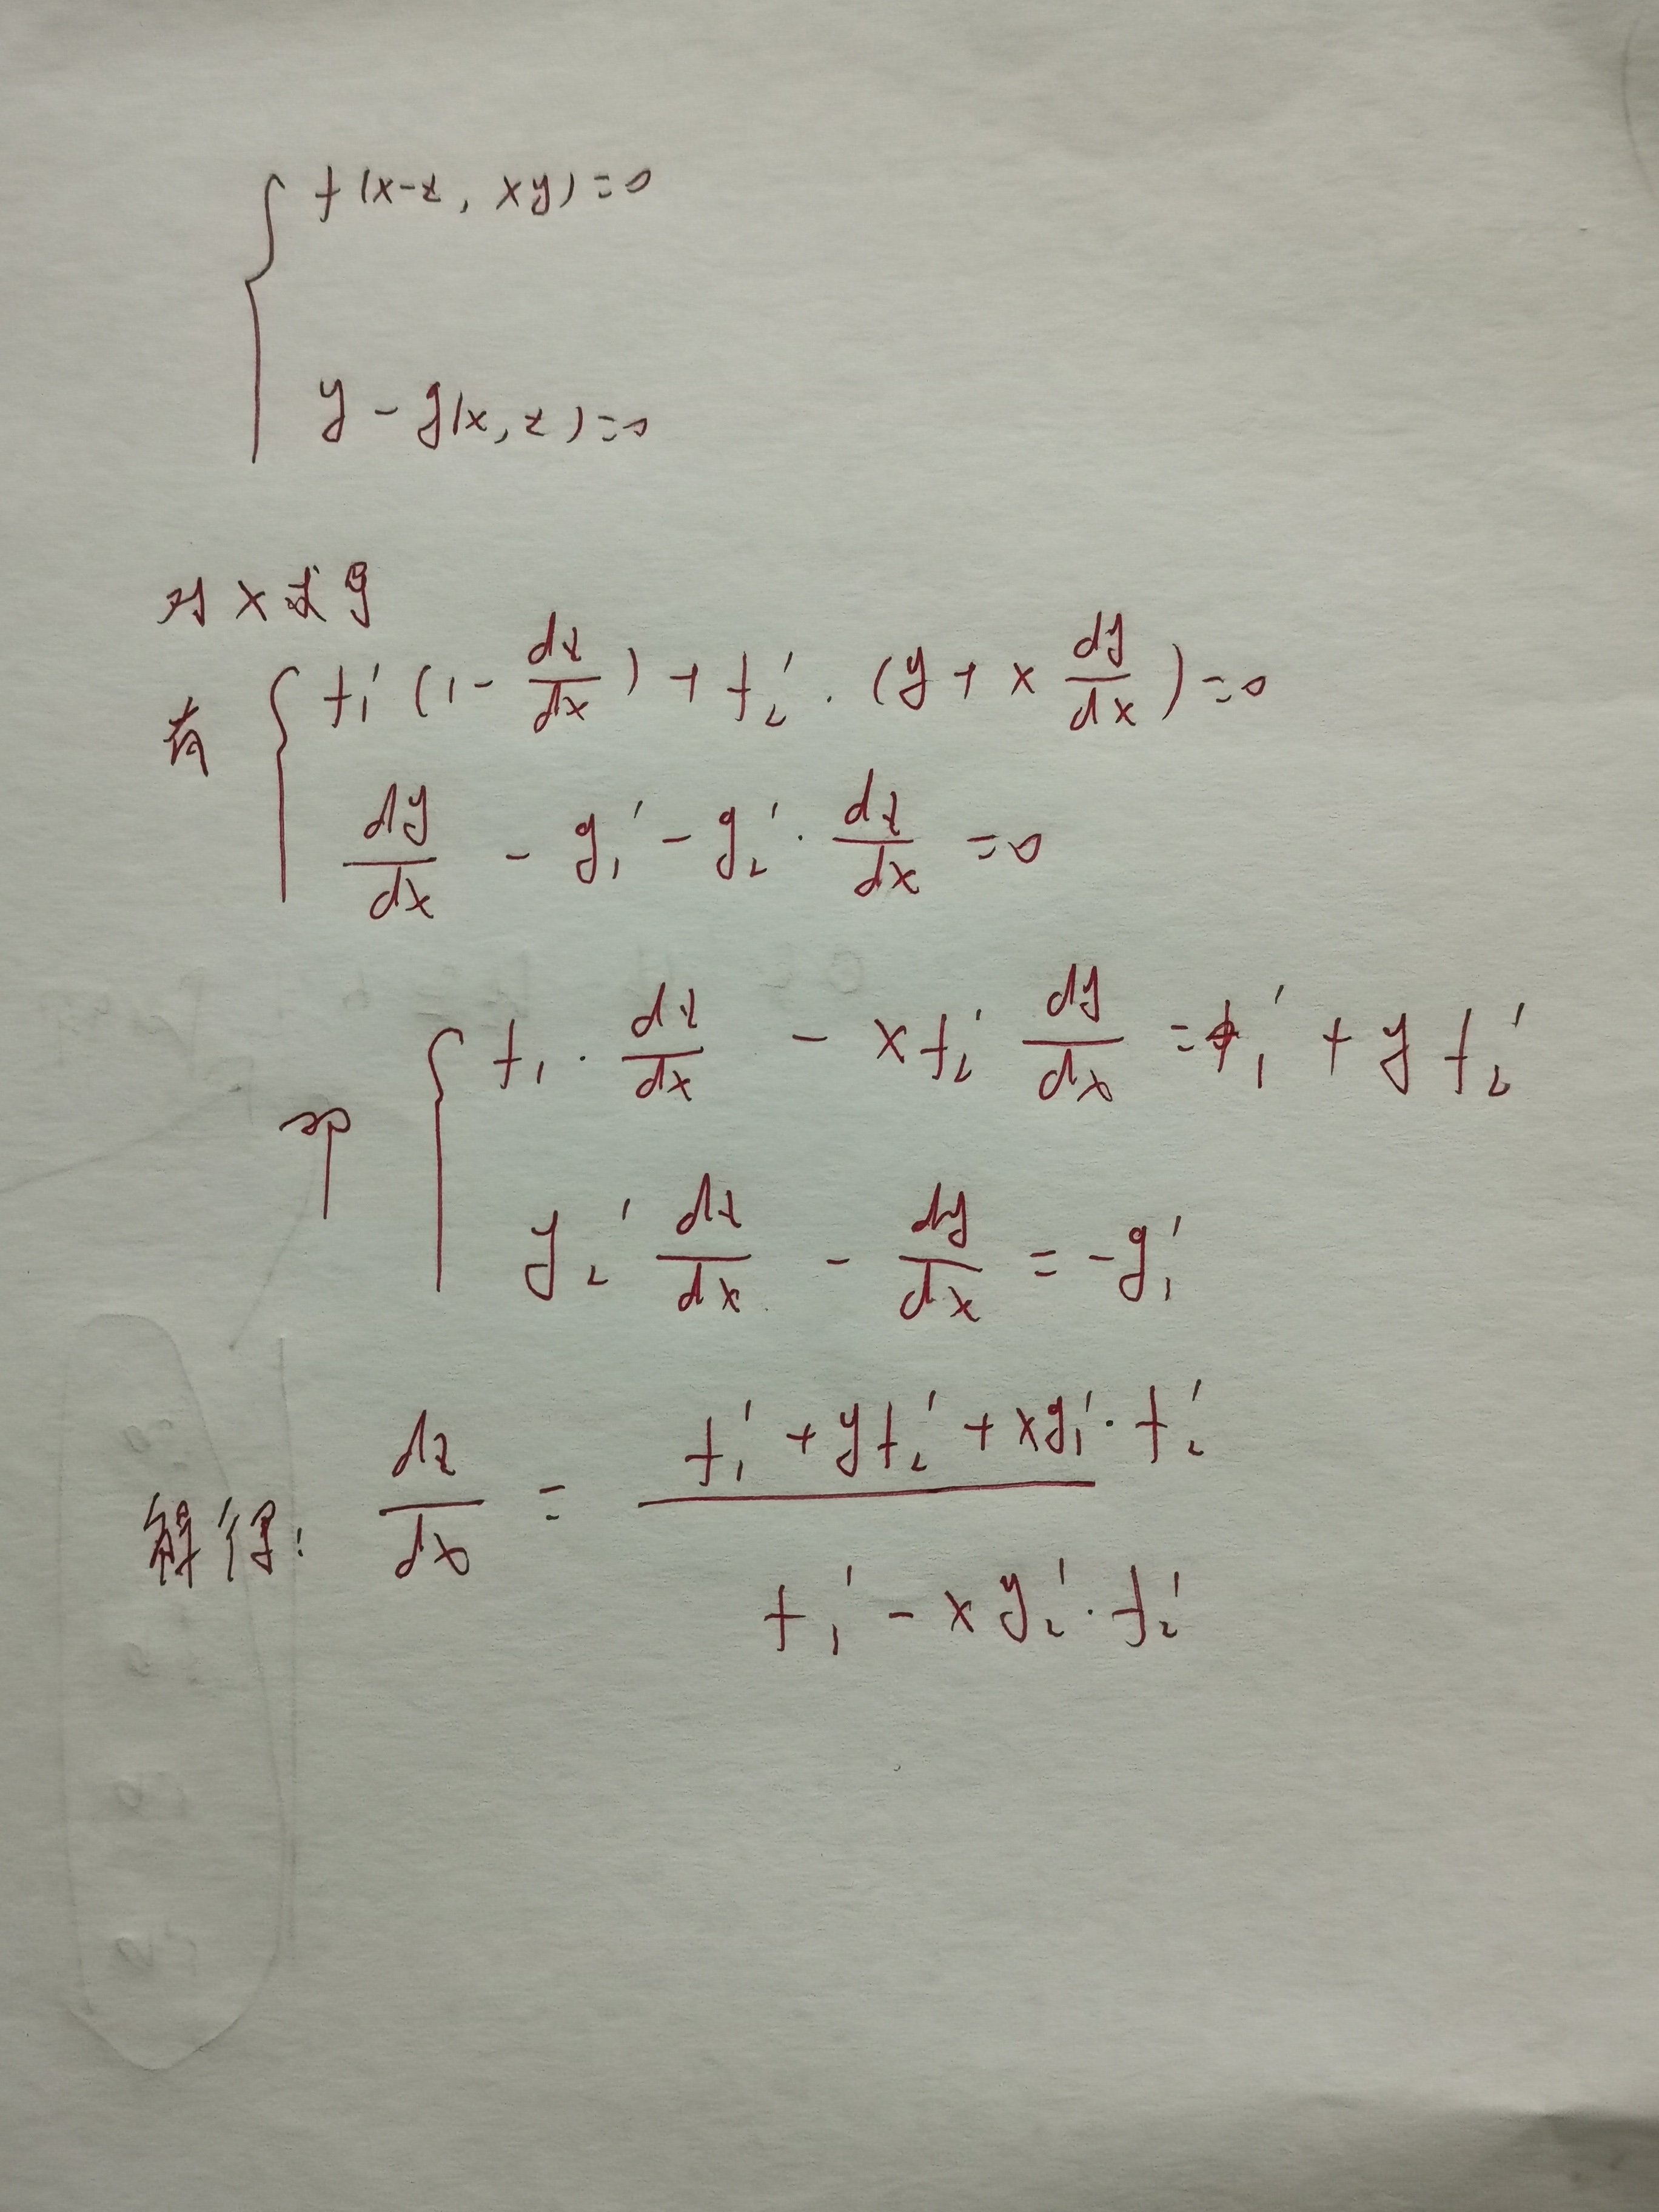 f(x-z, xy)=0
y - g(x, z)=0
对x求导
有 f₁′(1 - dz/dx) + f₂′·(y + x dy/dx)=0
dy/dx - g₁′ - g₂′·dz/dx =0
即 f₁·dz/dx - xf₂′ dy/dx = f₁′ + y f₂′
g₂′ dz/dx - dy/dx = -g₁′
解得: dz/dx = (f₁′ + yf₂′ + xg₁′·f₂′)/(f₁′ - xg₂′·f₂′)